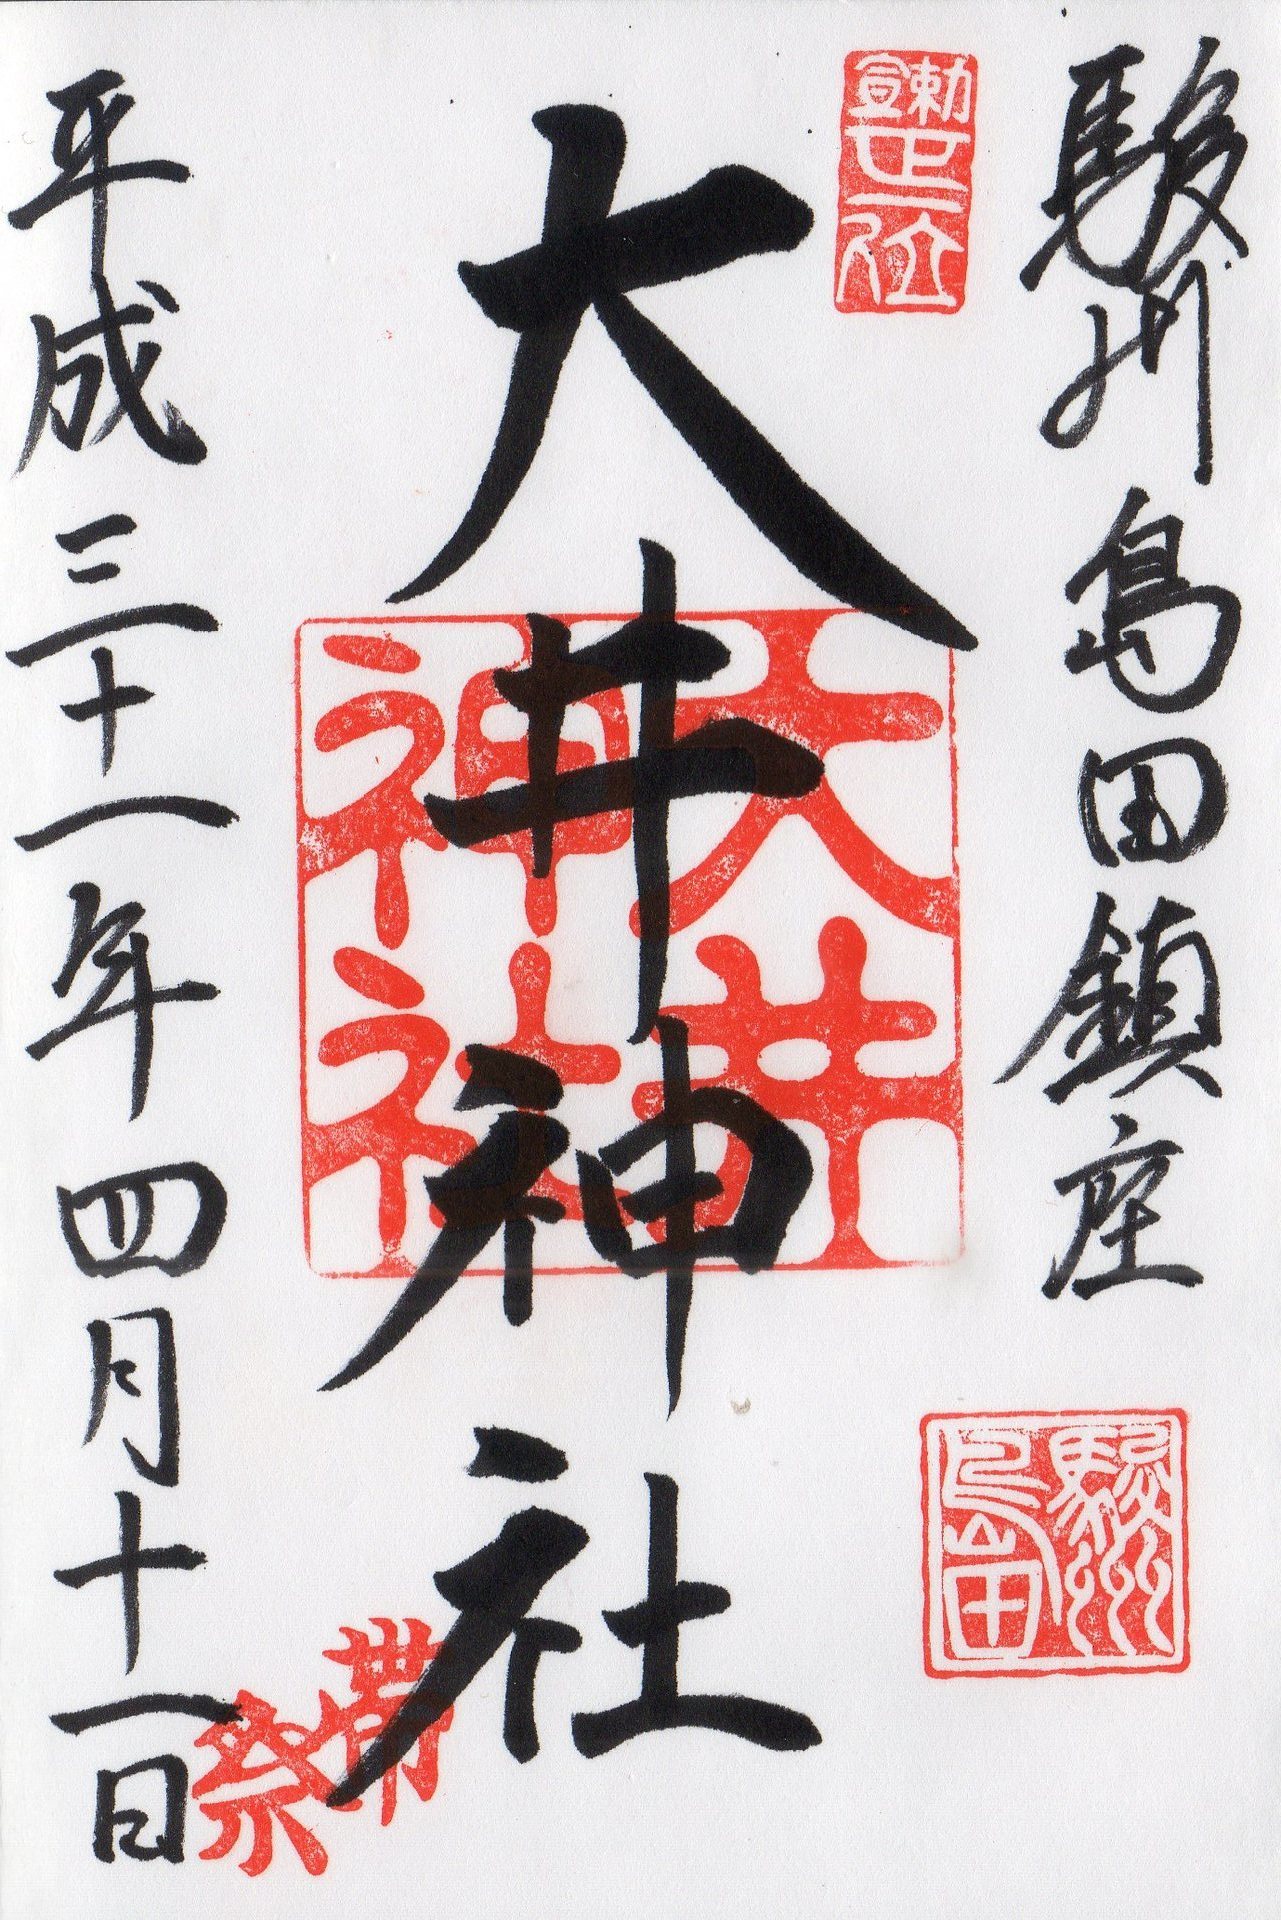 駿州島田鎮座
勅宣
正一位
駿州
島田
大井神社
大井
神社
帯祭
平成三十一年四月十一日